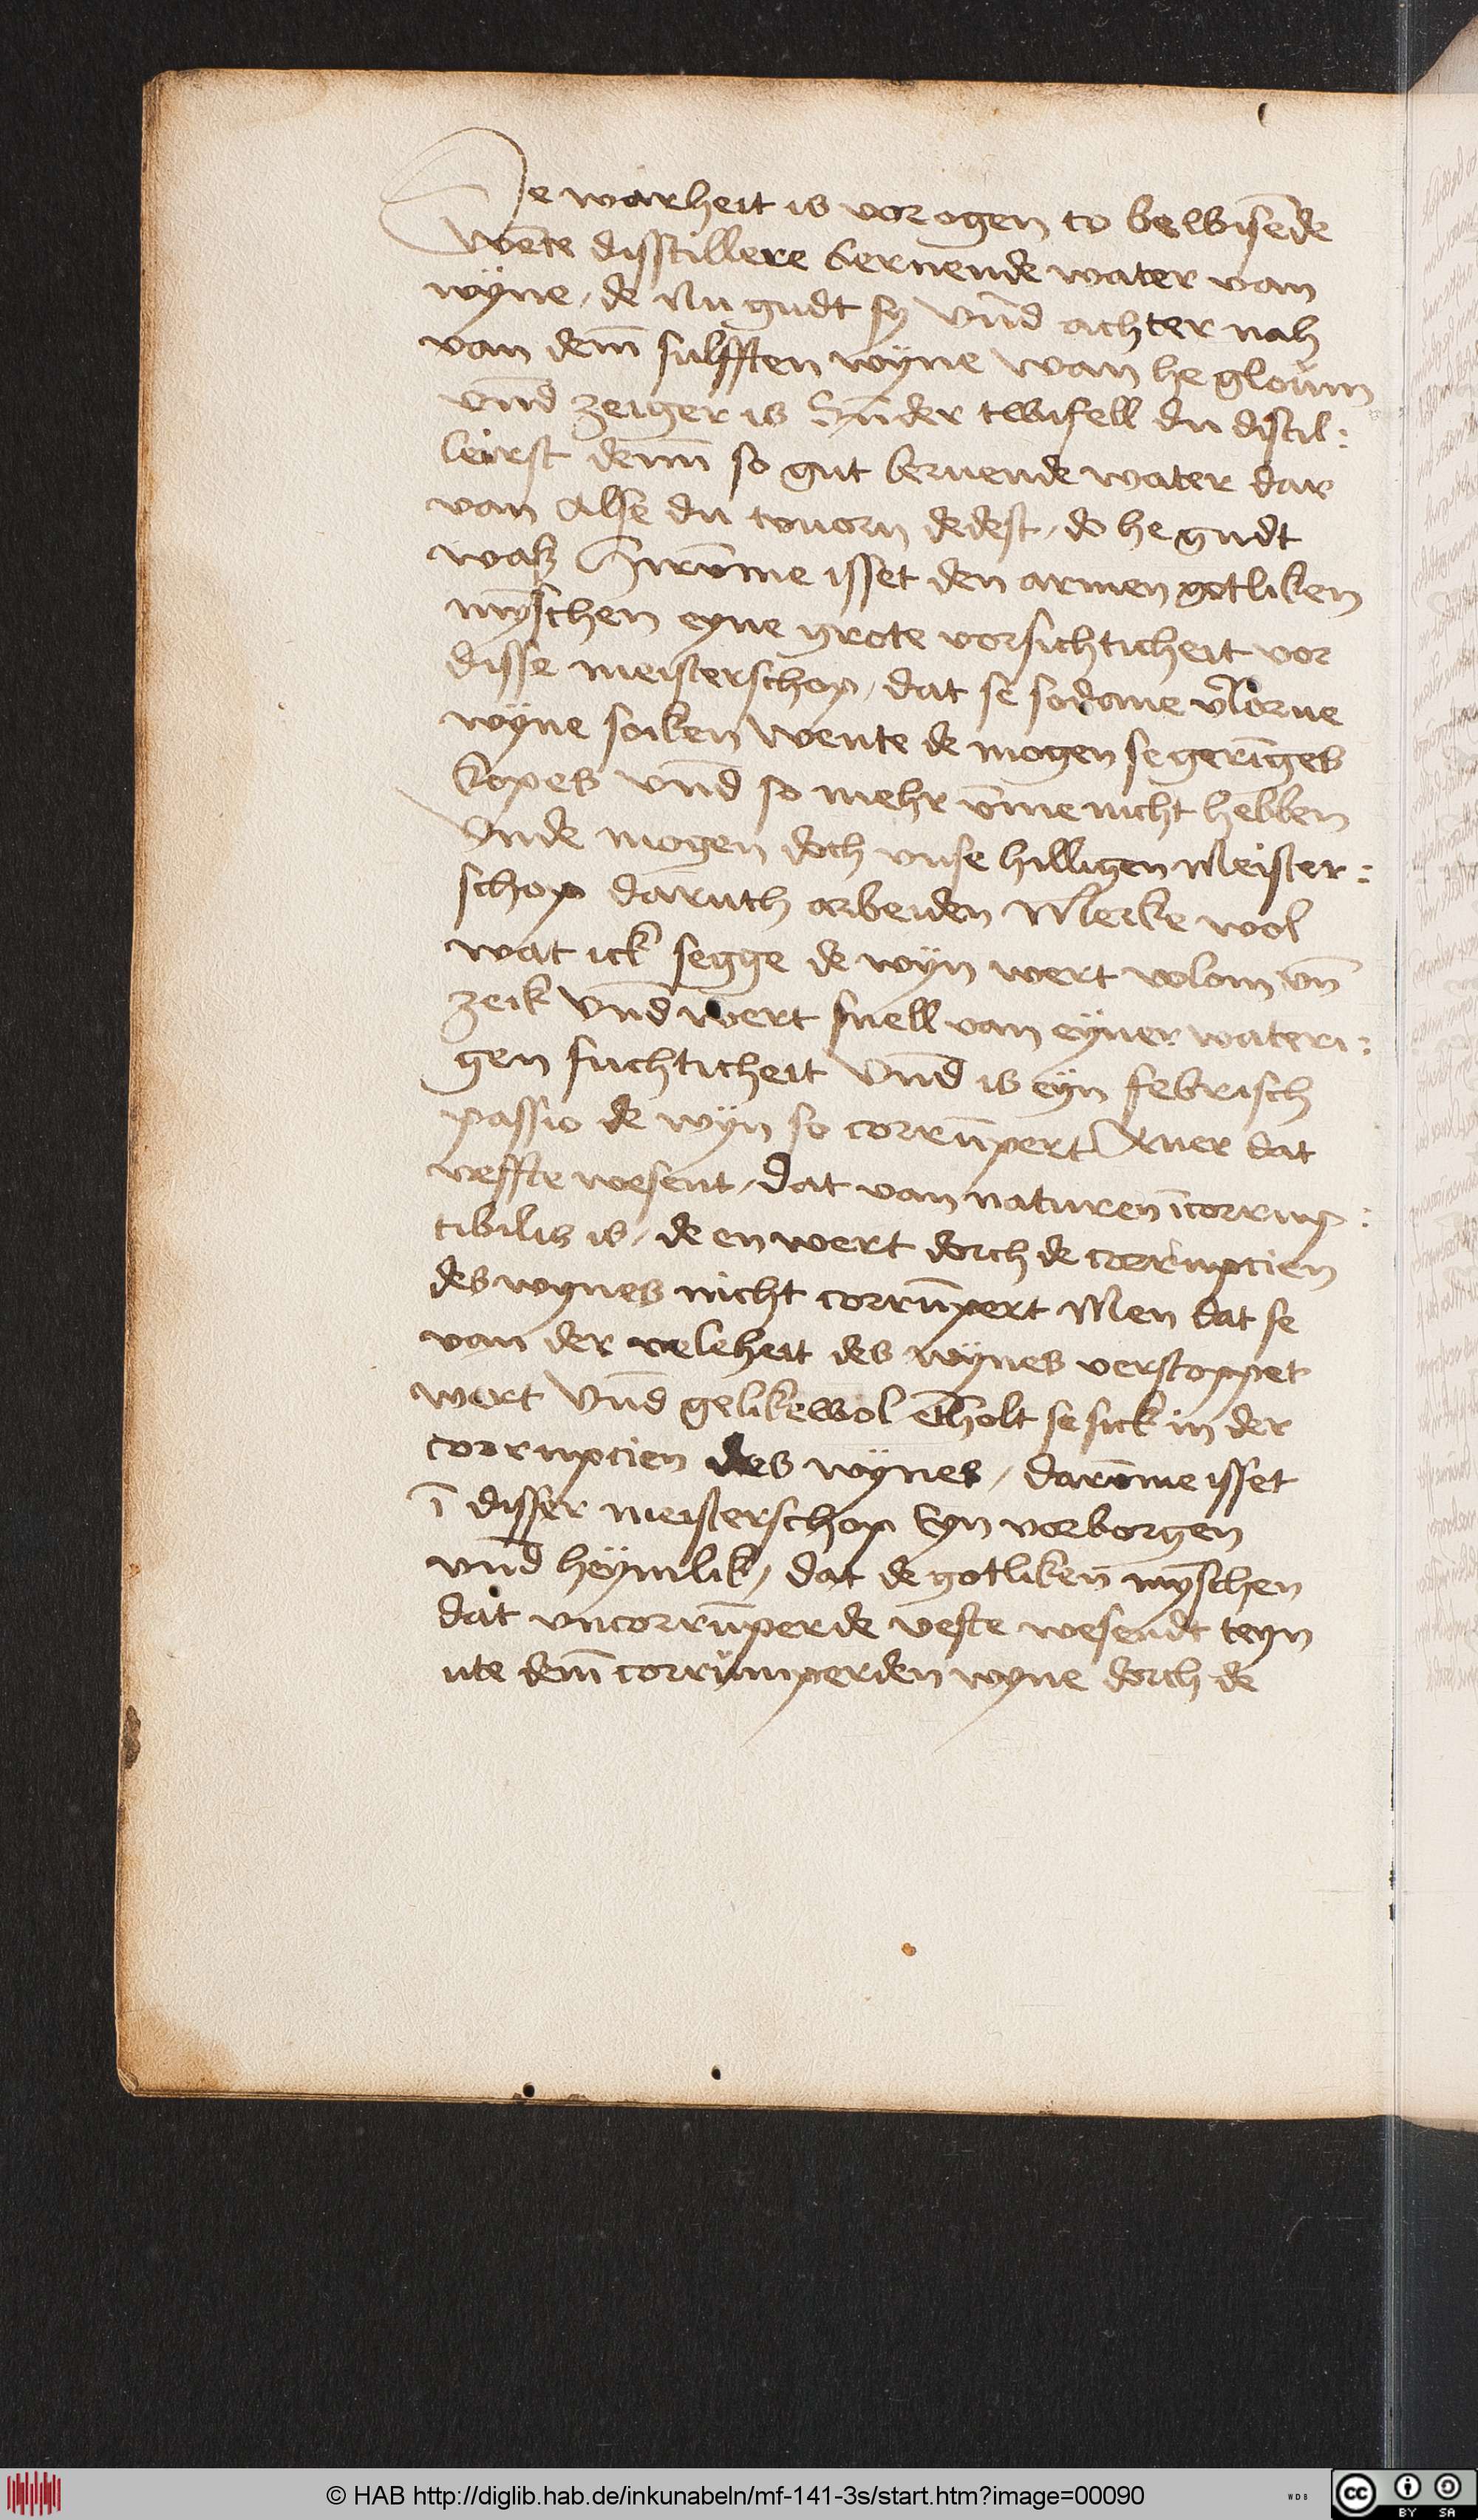 De warheit is vor ogen to bewisēde
Wēte disstillere bernende water van
wÿne / de Nu gudt sy Vn̄d achter nah
van dem̄ sulfften wÿne wan he gloūm
vn̄d zeiger is Sūder twifell du distil:
leirst denn so gut bernende water dar
van Alse du touorn dedest / do he gudt
waß Hirūme isset den armen gotliken
mȳschen eyne grote vorsichticheit vor
disse meisterschop / dat se sodane vlorne
wÿne soiken wente de mogen se gerīges
kopes vn̄d so mehr v̄me nicht hebben
Vnde mogen doch vnse hilligen Meister:
schop daruth arbeiden Merke wol
wat ick segge de wÿn wert vlom vn̄
zeik Vn̄d wert snell van eÿner wateri:
gen fuchticheit Vn̄d is eÿn febrisch
passio de wÿn so corrūpert Auer dat
veffte wesent / dat van naturen īcorrup:
tibilis is / de en wert dorch de corrupcien
des wynes nicht corrūpert Men dat se
van der veleheit des wÿnes verstoppet
wart Vn̄d gelikewol ētholt se sick in der
corrupcien des wÿnes / darūme isset
ī disser meisterschop Eyn vorborgen
vn̄d heÿmlik / dat de gotliken mȳschen
dat vncorrūperde veste wesendt teyn
ute dem̄ corrumperden wyne dorch de
© HAB http://diglib.hab.de/inkunabeln/mf-141-3s/start.htm?image=00090
WDB
cc BY SA